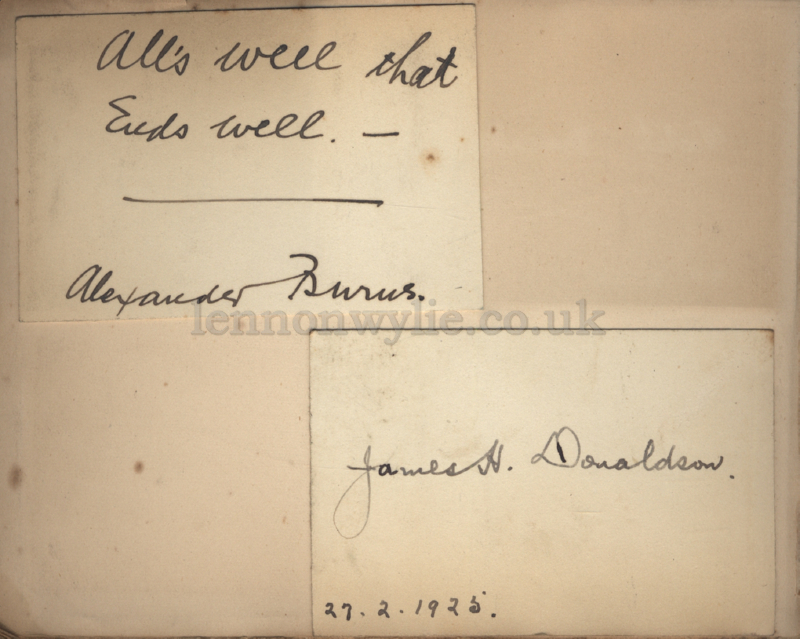 All's well that
Ends well. —
Alexander Burns.
lennonwylie.co.uk
James H. Donaldson.
27.2.1925.